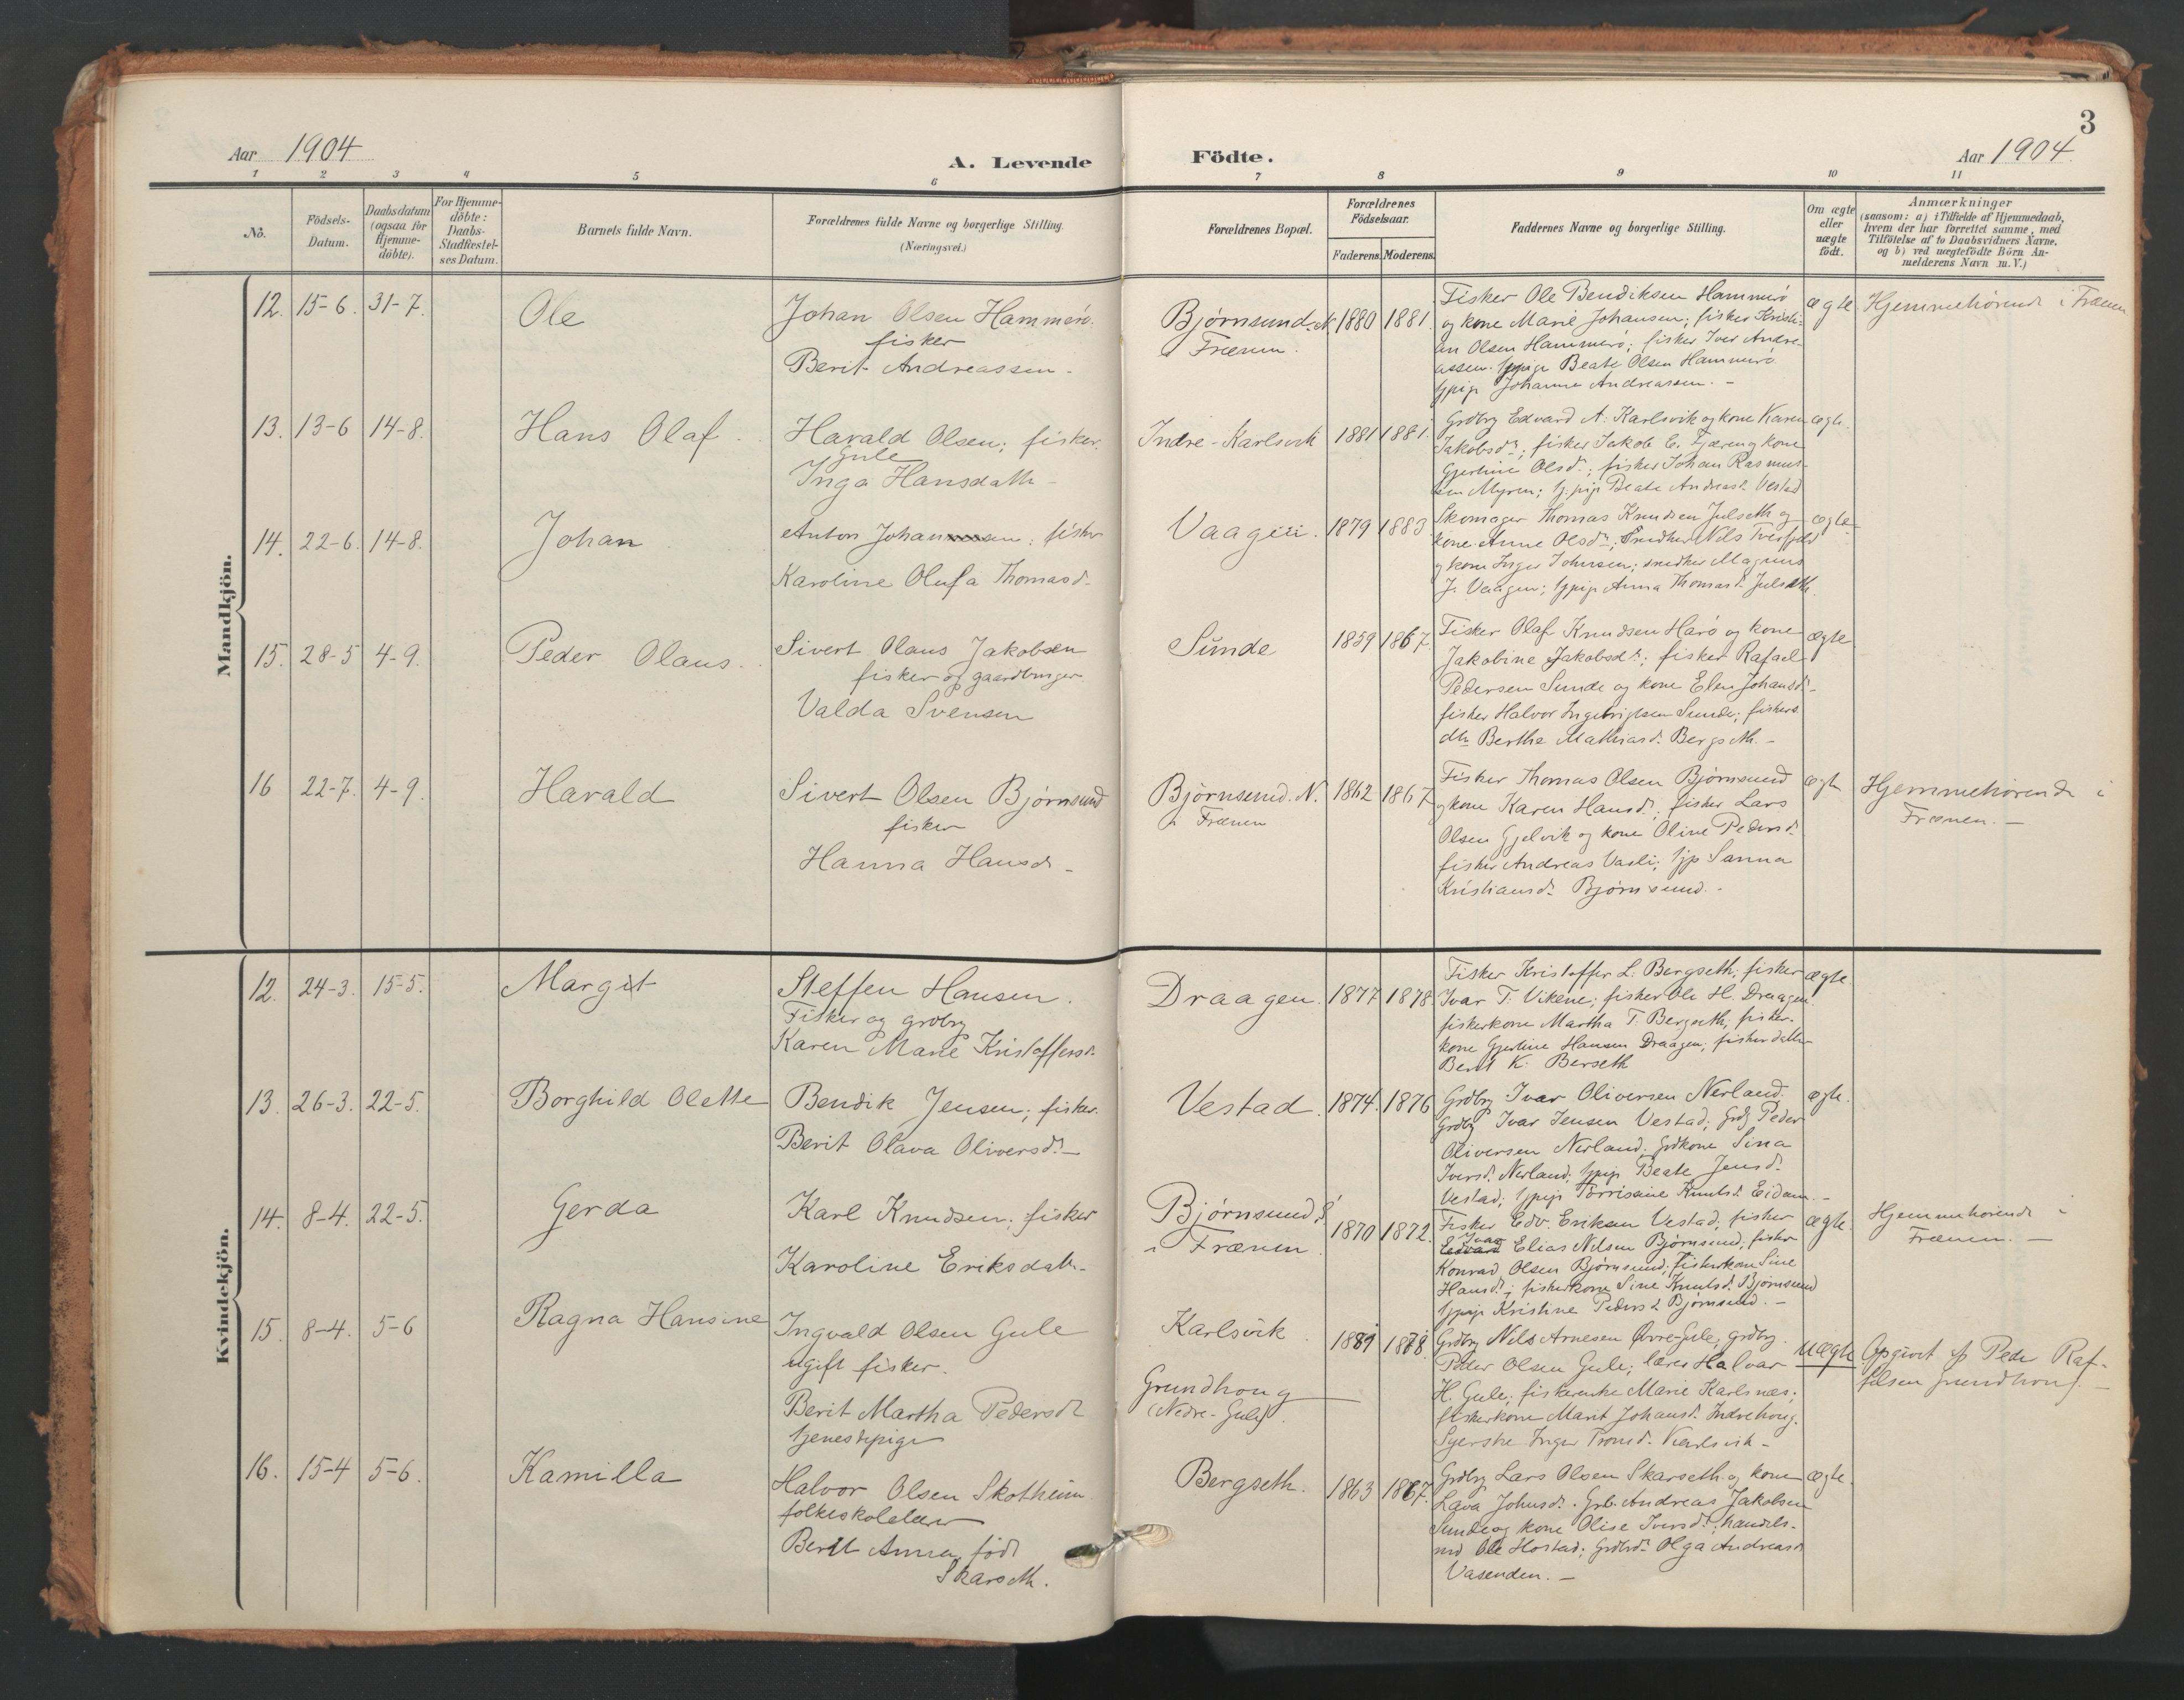 3
Aar 1904
A. Levende Födte.
Aar 1904.
1 2 3 4 5 6 7 8 9 10 11
No.
Födsels-Datum.
Daabsdatum (ogsaa for Hjemme-döbte).
For Hjemme-döbte: Daabs-Stadfæstel-ses Datum.
Barnets fulde Navn.
Forældrenes fulde Navne og borgerlige Stilling.
(Næringsvei.)
Forældrenes Bopæl.
Forældrenes Födselsaar.
Faderens. Moderens.
Faddernes Navne og borgerlige Stilling.
Om ægte eller uægte födt.
Anmærkninger
(saasom: a) i Tilfælde af Hjemmedaab,
hvem der har forrettet samme, med
Tilföielse af to Daabsvidners Navne,
og b) ved uægtefödte Börn An-
melderens Navn m. V.)
Mandkjön.
12. 15-6. 31-7.
Ole
Johan Olsen Hammerö.
fisker
Berit Andreassen.
Bjørnsund. N.
i Frænen.
1880 1881.
Fisker Ole Bendiksen Hammerö
og kone Marie Johansen; fisker Kristi-
an Olsen Hammerö; fisker Iver Andre-
assen. Beate Olsen Hammerö
Johanne Andreassen. -
ægte
Hjemmehørende i Frænen
13. 13-6 14-8.
Hans Olaf.
Harald Olsen; fisker.
Gule
Inga Hansdatter
Indre-Karlsvik
1881 1881.
Grdbr Edvard A. Karlsvik og kone Karen
Jakobsdr; fisker Jakob C. og kone
Gjertine Olsd.; fisker Johan Rasmus-
sen Myren; pige Beate Andreasd. Vestad
ægte.
14. 22-6. 14-8.
Johan
Anton Johansen; fisker
Karoline Olufa Thomasd.
Vaagen.
1879 1883
Skomager Thomas Knudsen Julseth og
kone Anne Olsdr; Snedker Nils Tverfjeld
og kone Inger Johnsen; snedker Magnus
J. Vaagen; pige Anna Thomasd. Julseth.
ægte
15. 28-5 4-9.
Peder Olaus.
Sivert Olaus Jakobsen
fisker og gaardbruger
Valda Svensen
Sunde
1859 1867.
Fisker Olaf Knudsen Harö og kone
Jakobine Jakobsdr.; fisker Rafael
Pedersen Sunde og kone Elen Johansd.
fisker Halvor Ingebrigtsen Sunde; fiskers
dtr Berthe Mathiasd. Bergseth. -
ægte
16 22-7. 4-9.
Harald
Sivert Olsen Bjørnsund
fisker
Hanna Hansd.
Bjørnsund. N.
i Frænen
1862 1867
Fisker Thomas Olsen Bjørnsund
og kone Karen Hansd.; fisker Lars
Olsen Gjelvik og kone Oline Pedersd.
fisker Andreas Vasli; Sanna
Kristiansd. Bjørnsund.
ægte
Hjemmehørende i
Frænen. -
Kvindekjön.
12. 24-3. 15-5.
Margit
Steffen Hansen.
Fisker og grdbrg
Karen Marie Kristoffersd.
Draagen.
1877 1878.
Fisker Kristoffer L. Bergseth; fisker
Ivar T. Vikene; fisker Ole H. Draagen.
fiskerkone Martha T. Bergseth; fisker-
kone Gjertine Hansen Draagen; fiskerdatter
Berit K. Berseth
ægte.
13. 26-3. 22-5.
Borghild Olette
Bendik Jensen; fisker.
Berit Olava Oliversd. -
Vestad.
1874. 1876
Grdbrg Ivar Oliversen Nerland.
Grdbrg Ivar Jensen Vestad; Grdbrg Peder
Oliversen Nerland; Grdkone Sina
Iversd. Nerland; pige Beate Jensd.
Vestad; pige Torrisine Knutsd. Eidem. -
ægte.
14. 8-4. 22-5.
Gerda
Karl Knudsen; fisker
Karoline Eriksdatter
Bjørnsund S.
i Frænen
1870 1872.
Fisker Edv. Eriksen Vestad; fisker
Ivar
Edvard Elias Nilsen Bjørnsund; fisker
Konrad Olsen Bjørnsund; fiskerkone Sine
Hansd.; fiskerkone Sine Knutsd. Bjørnsund
pige Kristine Pedersd. Bjørnsund. -
ægte.
Hjemmehørende i
Frænen. -
15. 8-4. 5-6
Ragna Hansine
Ingvald Olsen Gule
ugift fisker.
Berit Martha Pedersd.
tjenestepige
Karlsvik.
Grundhoug
(Nedre-Gule).
1881 1878.
Grdbrg Nils Arnesen Øvre-Gule; grdbrg
Peder Olsen Gule; lærer Halvar
H. Gule; fiskerenke Marie Karlsnæs;
fiskerkone Marit Johansd. Indrehoug.
Syerske Inger Tronsd. Karlsvik -
uægte
Opgivet af Peder Raf-
felsen Grundhoug. -
16. 15-4 5-6.
Kamilla
Halvor Olsen Skotheim.
folkeskolelærer
Berit Anna, född
Skarseth.
Bergseth.
1863 1867.
Grdbrg Lars Olsen Skarseth og kone
Lava Johnsdr. Grb. Andreas Jakobsen
Sunde og kone Olise Iversdr; handels-
md Ole Hostad; Grdbrdr Olga Andreasd.
Vasenden. -
ægte.